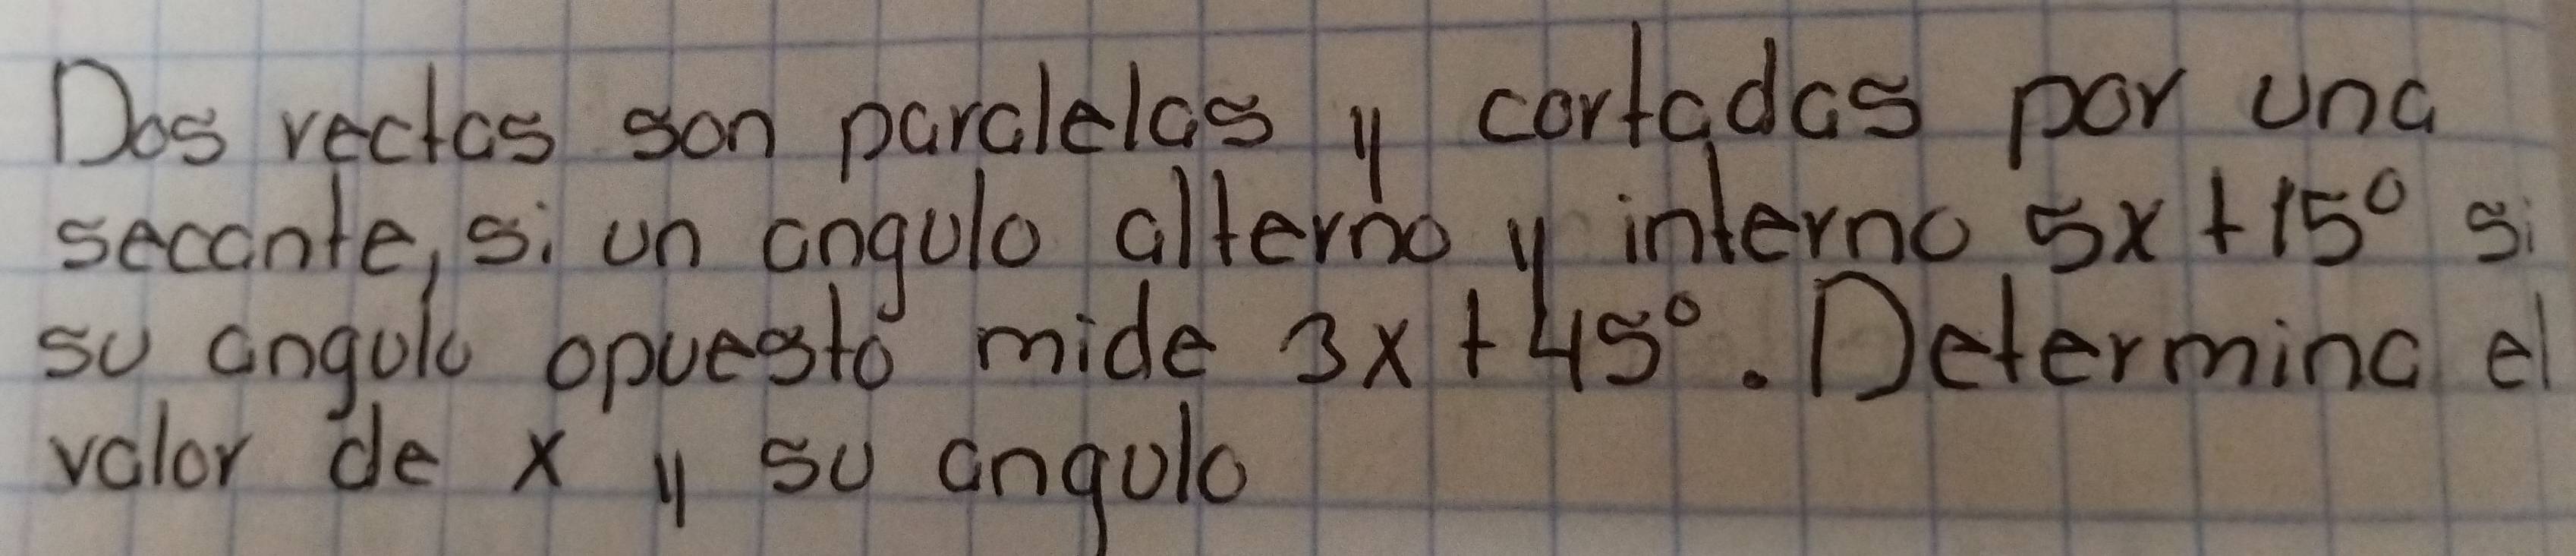 Dos rectas son paralelas y cortadas por una
secante, si un angulo alterno y interno 5x+15° si
su angulo opuesto mide 3x+45°. Determina el
valor de x y su angulo